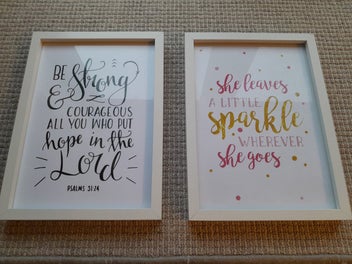 BE
& Strong
COURAGEOUS
ALL YOU WHO PUT
hope in the
Lord
PSALMS 31:24
she leaves
A LITTLE
sparkle
WHEREVER
she goes